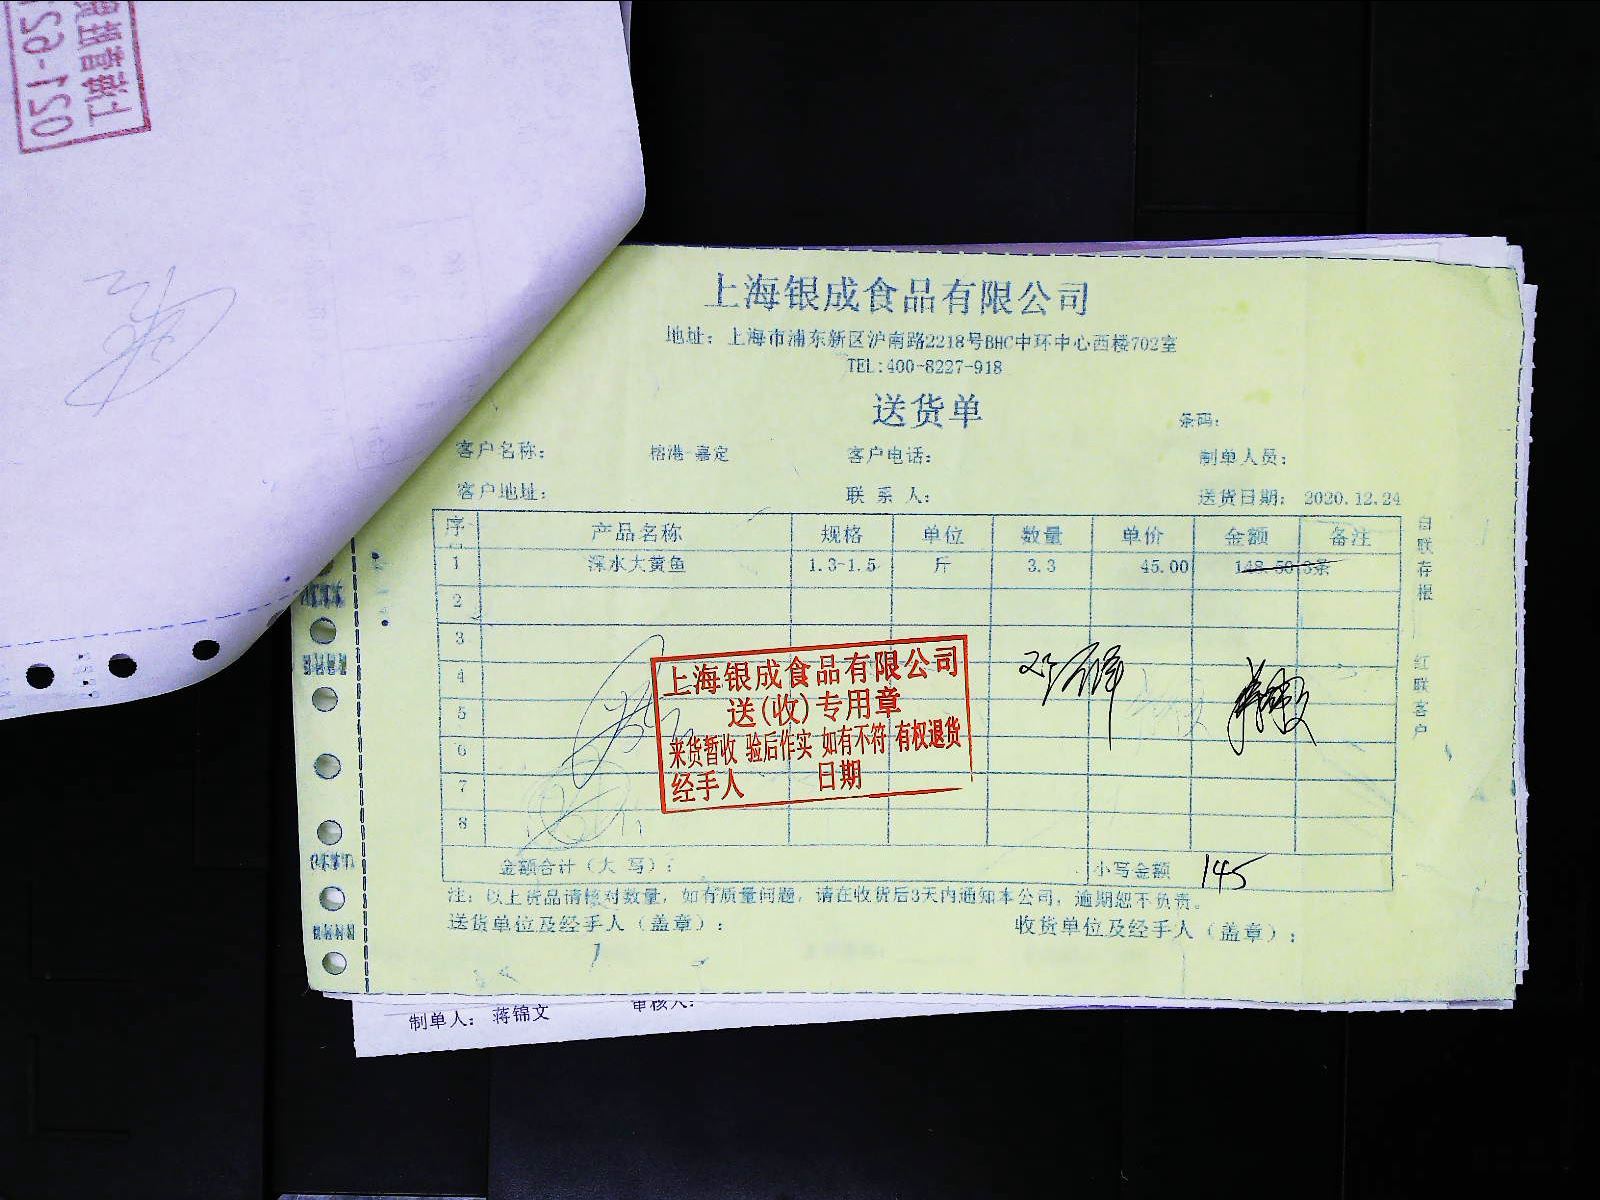 上海银成食品有限公司
地址：上海市浦东新区沪南路2218号BHC中环中心西楼702室
TEL:400-8227-918
送货单
条码：
客户名称： 榕港-嘉定 客户电话： 制单人员：
客户地址： 联 系 人： 送货日期： 2020.12.24
序 产品名称 规格 单位 数量 单价 金额 备注
1 深水大黄鱼 1.3-1.5 斤 3.3 45.00 148.50 3条
2
3
4
5
6
7
8
上海银成食品有限公司
送(收)专用章
来货暂收 验后作实 如有不符 有权退货
经手人 日期
金额合计（大 写）： 小写金额 145
注：以上货品请核对数量，如有质量问题，请在收货后3天内通知本公司，逾期恕不负责。
送货单位及经手人（盖章）： 收货单位及经手人（盖章）：
白联存根 红联客户
制单人： 蒋锦文 审核人：